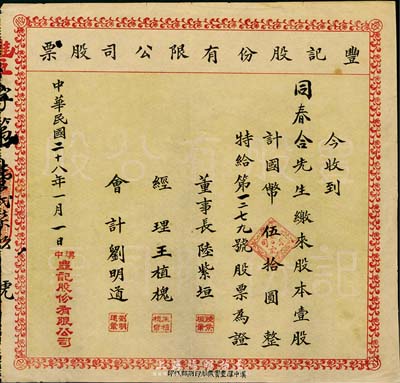 豐記股份有限公司股票
今收到
同春合先生繳來股本壹股
計國幣伍拾圓整
特給第一二七九號股票為證
董事長陸紫垣
經理王植槐
會計劉明道
中華民國二十八年一月一日
漢中豐記股份有限公司
字第
號